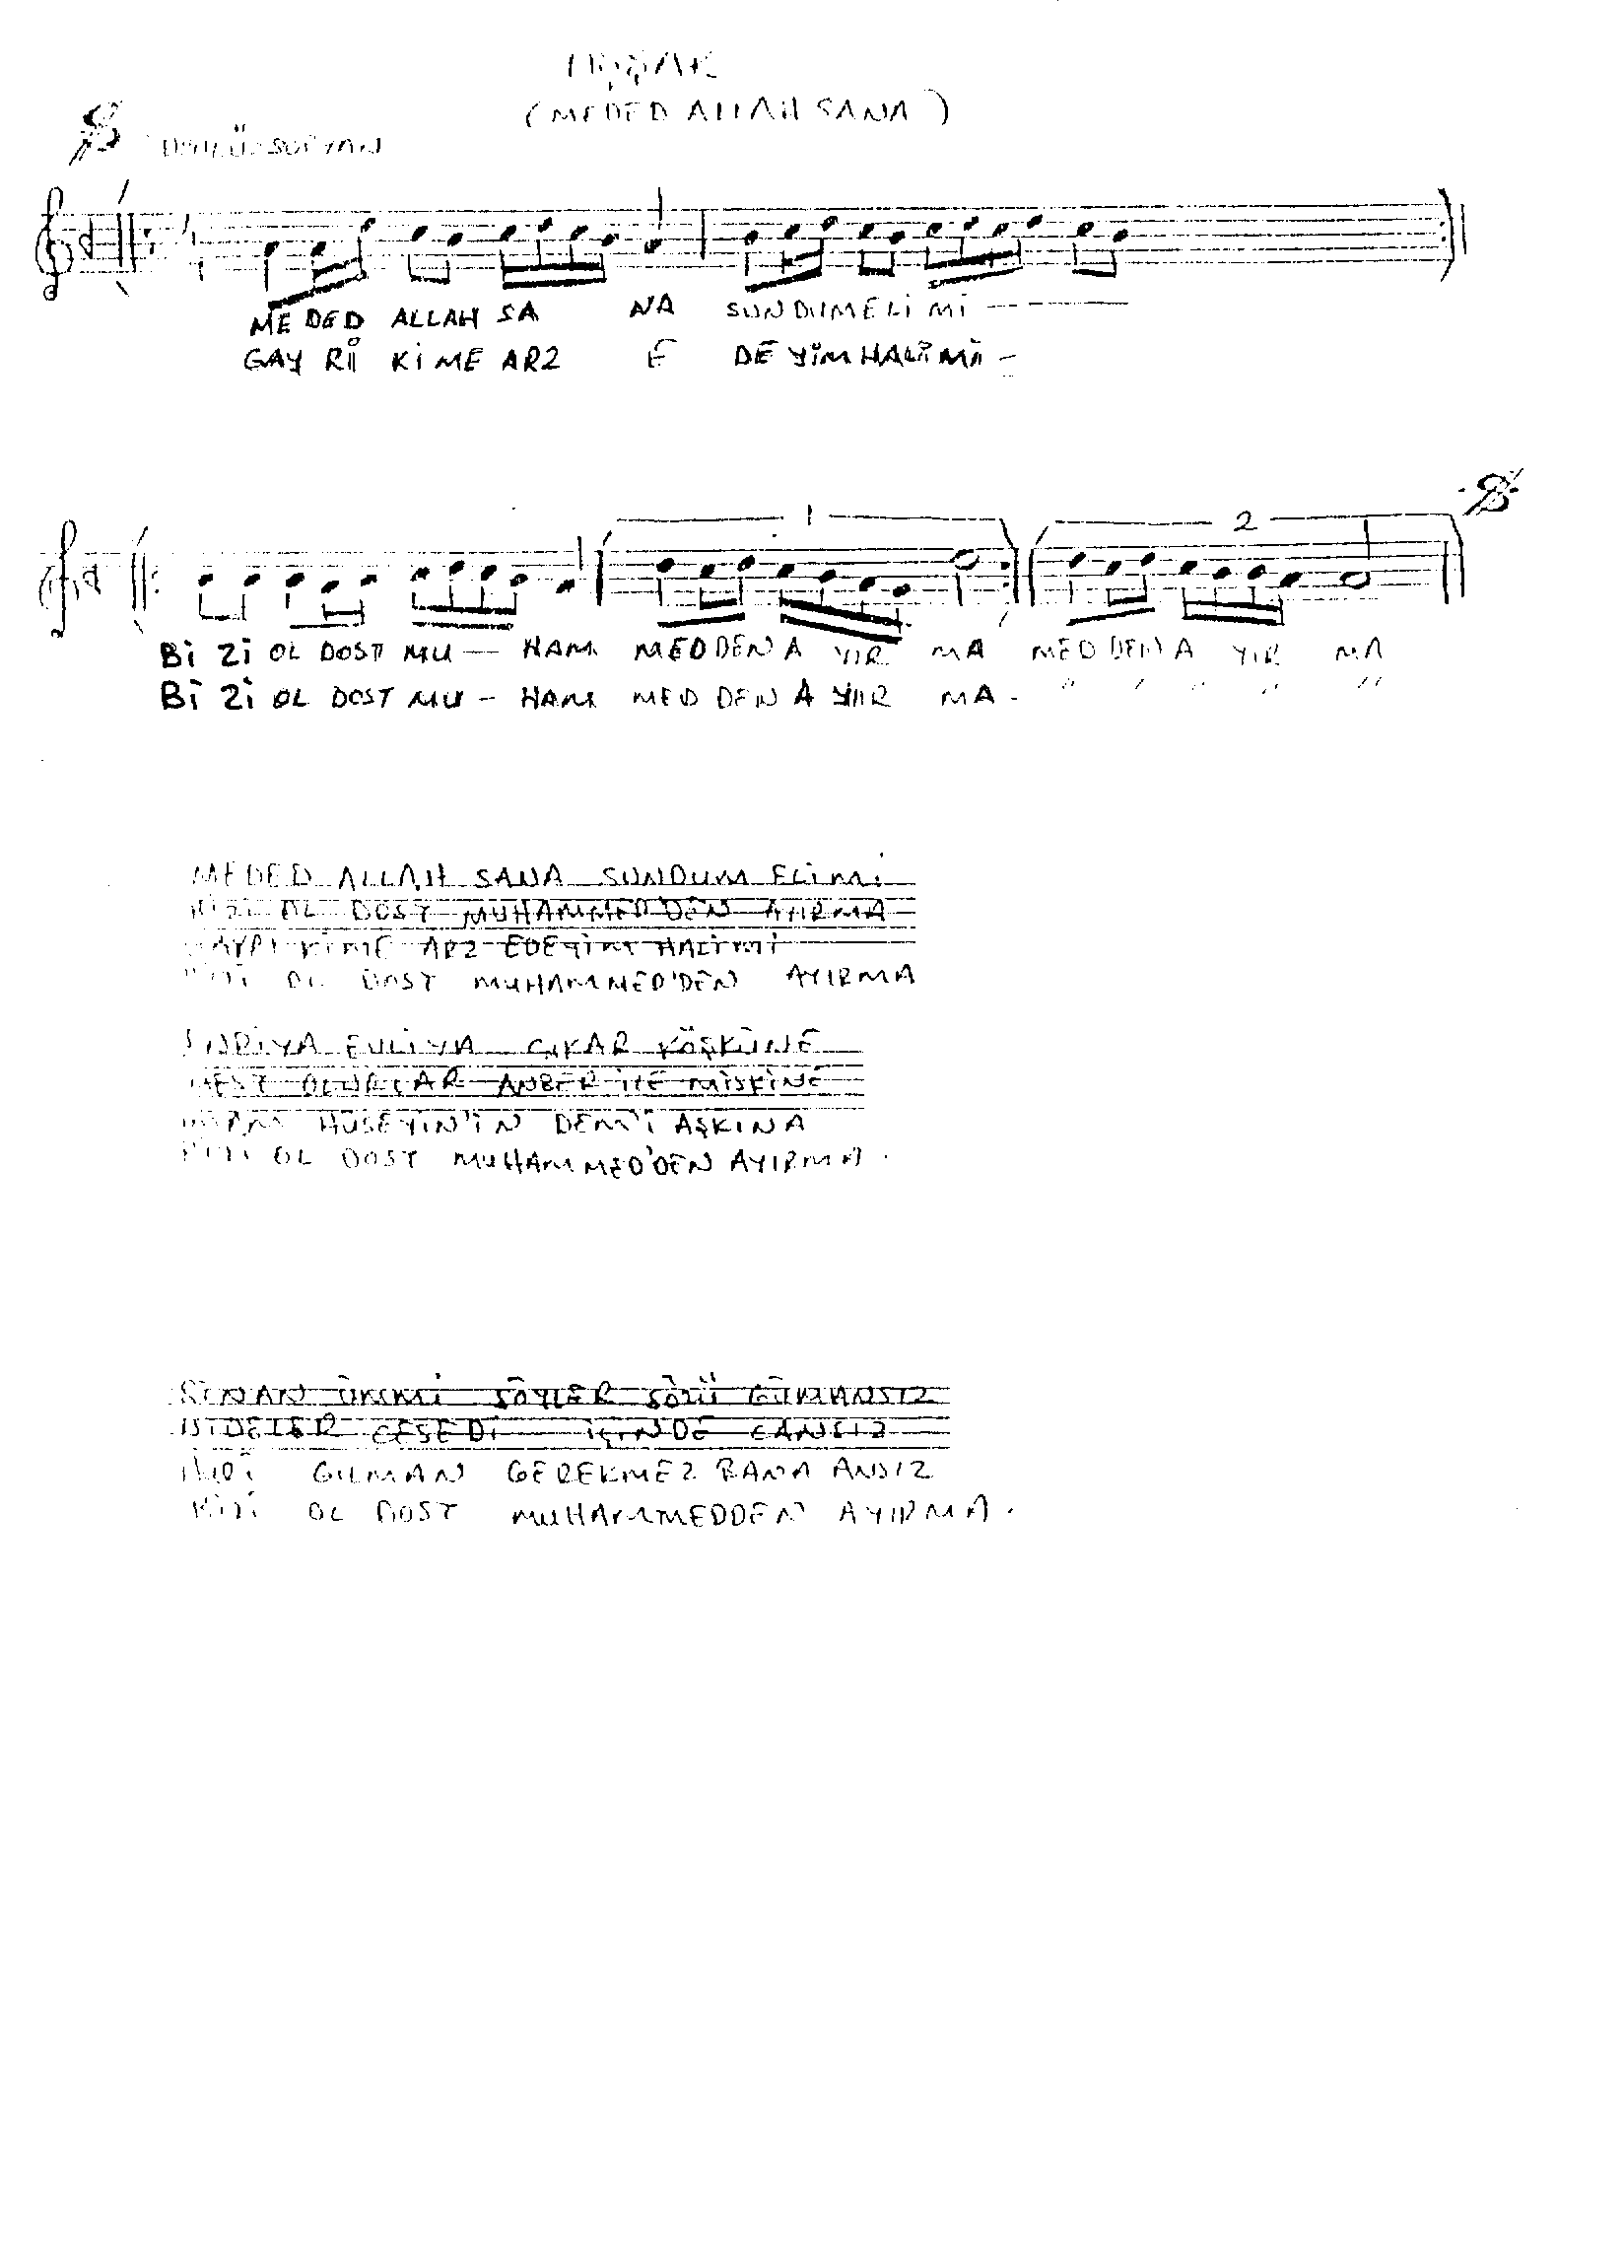 UŞŞAK
(MEDED ALLAH SANA)
SOFYAN
MEDED ALLAH SA NA SUNDUMELİMİ
GAY Rİ KİME ARZ E DEYİMHALİMİ -
1 2
Bİ Zİ OL DOST MU — HAM MEDDEN A YIR MA MEDDEN A YIR MA
Bİ Zİ OL DOST MU - HAM MED DEN A YIR MA - " " " " "
MEDED ALLAH SANA SUNDUM ELİMİ
BİZİ OL DOST MUHAMMED'DEN AYIRMA
GAYRI KİME ARZ EDEYİM HALİMİ
BİZİ OL DOST MUHAMMED'DEN AYIRMA
EVLİYA ÇIKAR KÖŞKÜNE
MEST OLURLAR ANBER İLE MİSKİNE
İMAM HÜSEYİN'İN DEM'İ AŞKINA
BİZİ OL DOST MUHAMMED'DEN AYIRMA.
SİNAN ÜMMİ SÖYLER SÖZÜ GÜMANSIZ
CESEDİ İÇİNDE CANSIZ
GILMAN GEREKMEZ BANA ANSIZ
BİZİ OL DOST MUHAMMEDDEN AYIRMA.